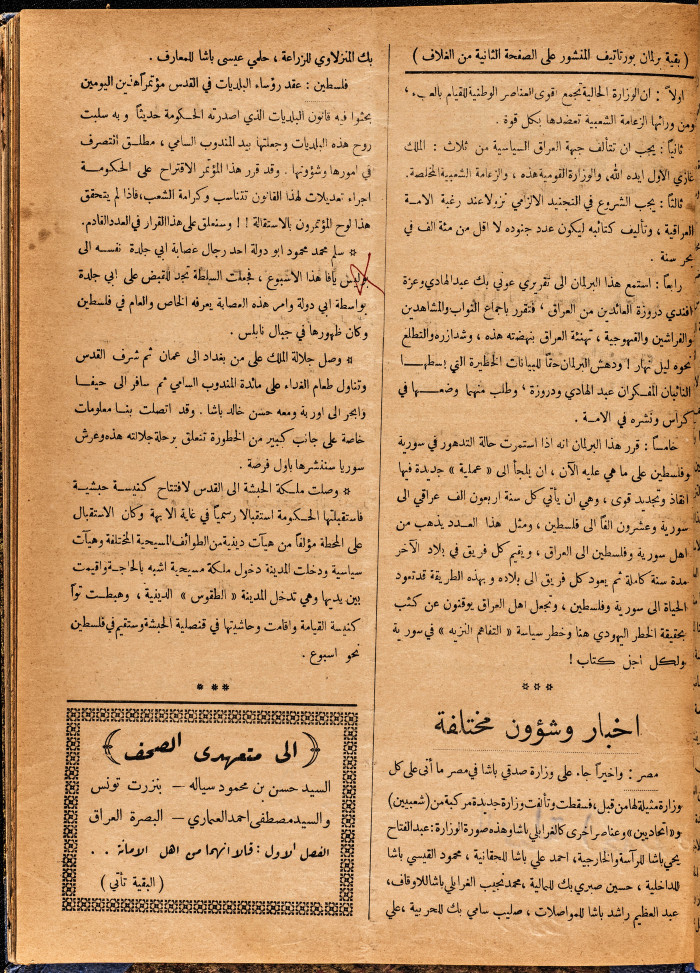 ( بقية برلمان بورتاتيف المنشور على الصفحة الثانية من الغلاف )
اولاً : ان الوزارة الحالية تجمع اقوى العناصر الوطنية للقيام بالعبء ،
ومن ورائها الزعامة الشعبية تعضدها بكل قوة .
ثانياً : يجب ان تتألف جبهة العراق السياسية من ثلاث : الملك
غازي الأول ايده الله، والوزارة القومية هذه ، والزعامة الشعبية المخلصة.
ثالثاً : يجب الشروع في التجنيد الالزامي نزولا عند رغبة الامة
العراقية ، وتأليف كتائبه ليكون عدد جنوده لا اقل من مئة الف في
بحر سنة .
رابعاً : استمع هذا البرلمان الى تقريري عوني بك عبد الهادي وعزة
افندي دروزة العائدين من العراق ، فتقرر باجماع النواب والمشاهدين
والفراشين والقهوجية ، تهنئة العراق بنهضته هذه ، وشد ازره والتطلع
نحوه ليل نهار ! ودهش البرلمان حقاً للبيانات الخطيرة التي بسطهـا
النائبان المفكران عبد الهادي ودروزة ، وطلب منهما وضعهـا في
كراس ونشره في الامة .
خامساً : قرر هذا البرلمان انه اذا استمرت حالة التدهور في سورية
وفلسطين على ما هي عليه الآن ، ان يلجأ الى « عملية » جديدة فيها
انقاذ وتجديد قوى ، وهي ان يأتي كل سنة اربعون الف عراقي الى
سورية وعشرون الفاً الى فلسطين ، ومثل هذا العدد يذهب من
اهل سورية وفلسطين الى العراق ، ويقيم كل فريق في بلاد الآخر
مدة سنة كاملة ثم يعود كل فريق الى بلاده وبهذه الطريقة قد تعود
الحياة الى سورية وفلسطين ، ونجعل اهل العراق يوقنون عن كثب
بحقيقة الخطر اليهودي هنا وخطر سياسة « التفاهم النزيه » في سورية
ولكل اجل كتاب !
اخبار وشؤون مختلفة
مصر : واخيراً جاء على وزارة صدقي باشا في مصر ما أتى على كل
وزارة مثيلة لها من قبل، فسقطت وتألفت وزارة جديدة مركبة من (شعبيين)
و « اتحاديين » وعناصر اخرى كالغرابلي باشا وهذه صورة الوزارة : عبد الفتاح
يحيى باشا للرآسة والخارجية، احمد علي باشا للحقانية ، محمود القيسي باشا
للداخلية ، حسين صبري بك للمالية ، محمد نجيب الغرابلي باشا للاوقاف،
عبد العظيم راشد باشا للمواصلات ، صليب سامي بك للحربية ، علي
بك المنزلاوي للزراعة ، حلمي عيسى باشا للمعارف .
فلسطين : عقد رؤساء البلديات في القدس مؤتمراً هذين اليومين
بحثوا فيه قانون البلديات الذي اصدرته الحكومة حديثاً وبه سلبت
روح هذه البلديات وجعلتها بيد المندوب السامي ، مطلق التصرف
في امورها وشؤونها . وقد قرر هذا المؤتمر الاقتراح على الحكومـة
اجراء تعديلات لهذا القانون تتناسب وكرامة الشعب، فاذا لم يتحقق
هذا لوح المؤتمرون بالاستقالة ! ! وسنعلق على هذا القرار في العدد القادم.
* سلم محمد محمود ابو دولة احد رجال عصابة ابي جلدة نفسه الى
بوليس يافا هذا الاسبوع ، فجعلت السلطة تجد للقبض على ابي جلدة
بواسطة ابي دولة وامر هذه العصابة يعرفه الخاص والعام في فلسطين
وكان ظهورها في جبال نابلس .
* وصل جلالة الملك على من بغداد الى عمان ثم شرف القدس
وتناول طعام الغداء على مائدة المندوب السامي ثم سافر الى حيفا
وابحر الى اوربة ومعه حسن خالد باشا . وقد اتصلت بنا معلومات
خاصة على جانب كبير من الخطورة تتعلق برحلة جلالته هذه وعرش
سوريا سننشرها باول فرصة .
* وصلت ملكة الحبشة الى القدس لافتتاح كنيسة حبشية
فاستقبلتها الحكومة استقبالا رسمياً في غاية الابهة وكان الاستقبال
على المحطة مؤلفاً من هيآت دينية من الطوائف المسيحية المختلفة وهيآت
سياسية ودخلت المدينة دخول ملكة مسيحية اشبه بالحاجة واقيمت
بين يديها وهي تدخل المدينة « الطقوس » الدينية ، وهبطت تواً
كنيسة القيامة واقامت وحاشيتها في قنصلية الحبشة وستقيم في فلسطين
نحو اسبوع .
( الى متعهدى الصحف )
السيد حسن بن محمود سياله — بنزرت تونس
والسيد مصطفى احمد العماري — البصرة العراق
الفصل الاول : قالا انهما من اهل الامانة . .
( البقية تأتي )